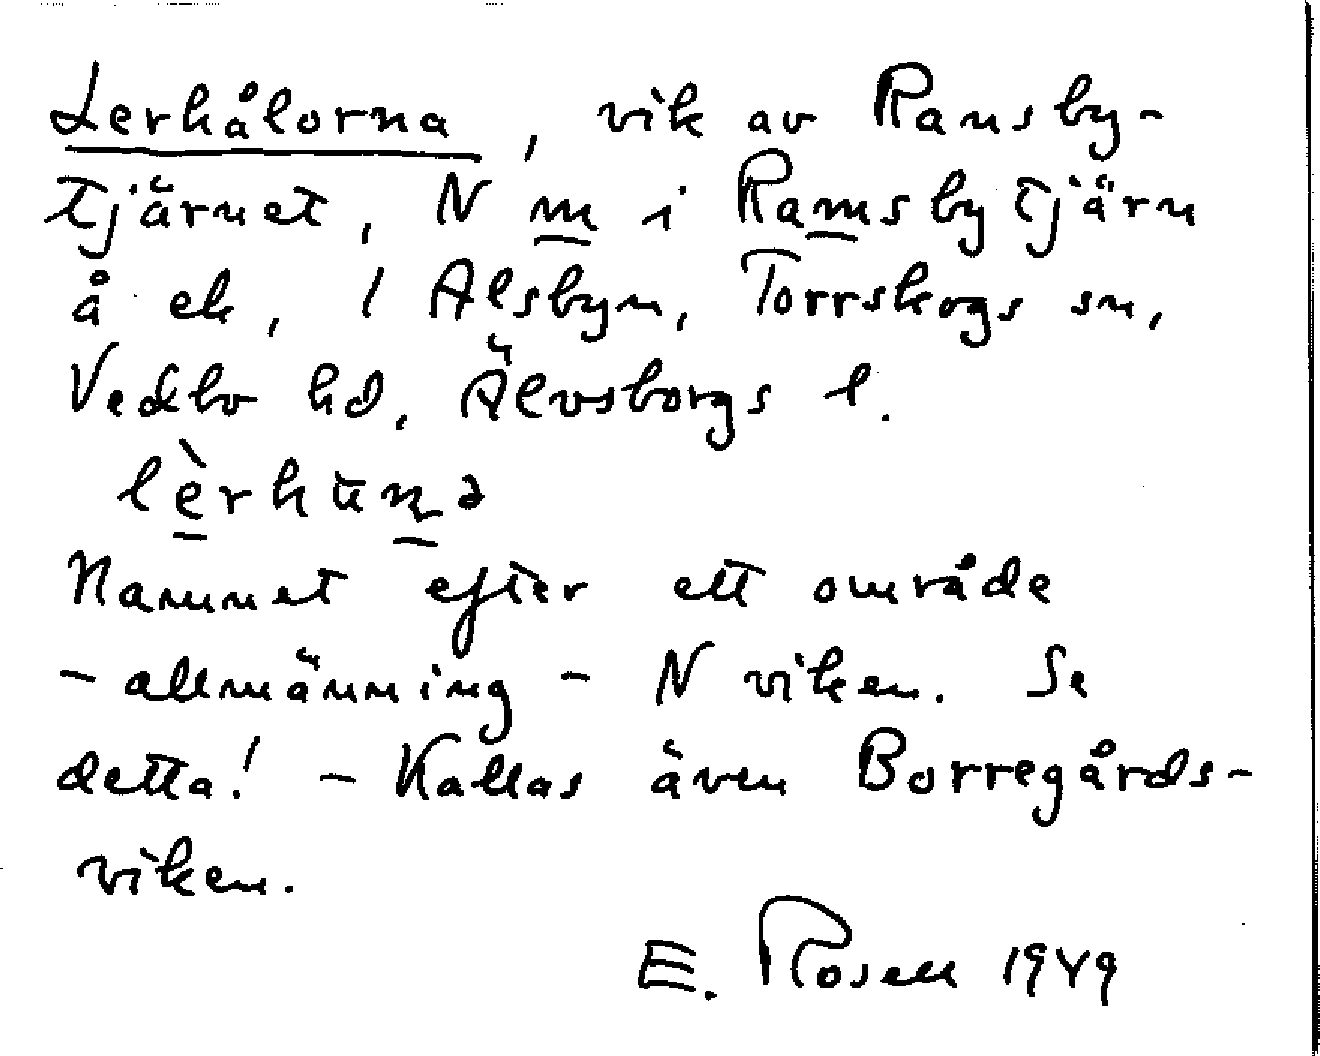 Lerhålorna, vik av Ramsby-
tjärnet, N m i Ramsbytjärn
å ek, l Alsbyn, Torrskogs sn,
Vedbo hd, Älvsborgs l.
Namnet efter ett område
- allmänning - N viken. Se
detta! - Kallas även Borregårds-
viken.
E. Rosell 1949